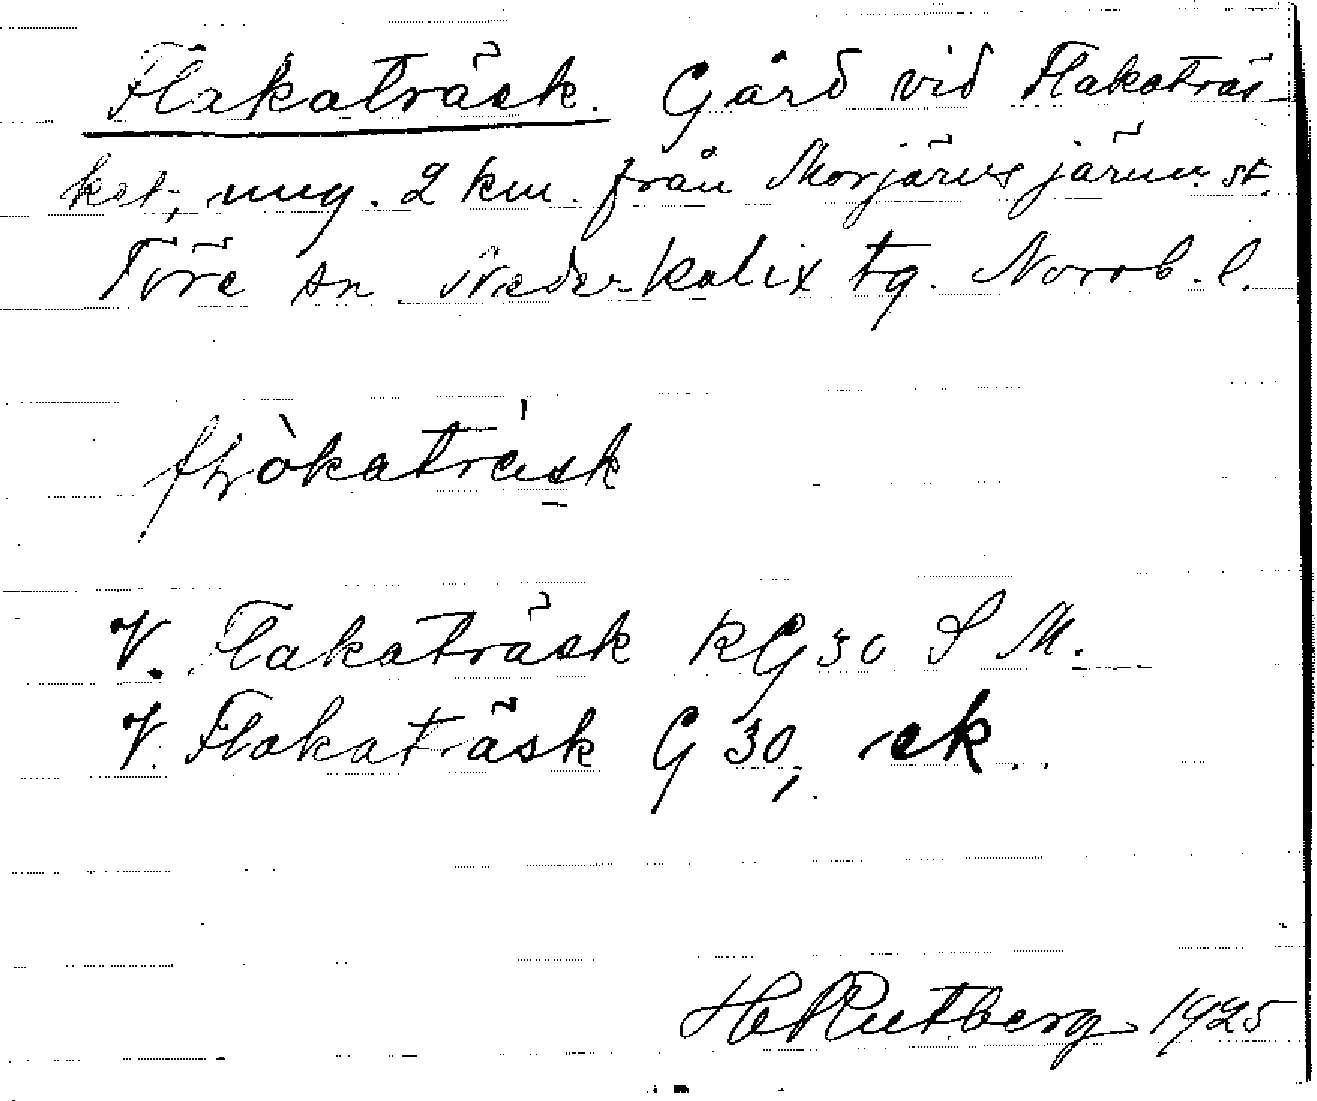 Flakaträsk. Gård vid Flakaträs
ket, ung. 2 km. från Morjärvs järnv. st.
Töre sn. Nederkalix tg. Norrb. l.
V. Flakaträsk RG 30 S M.
V. Flakaträsk G 30, ek.
H Rutberg 1925